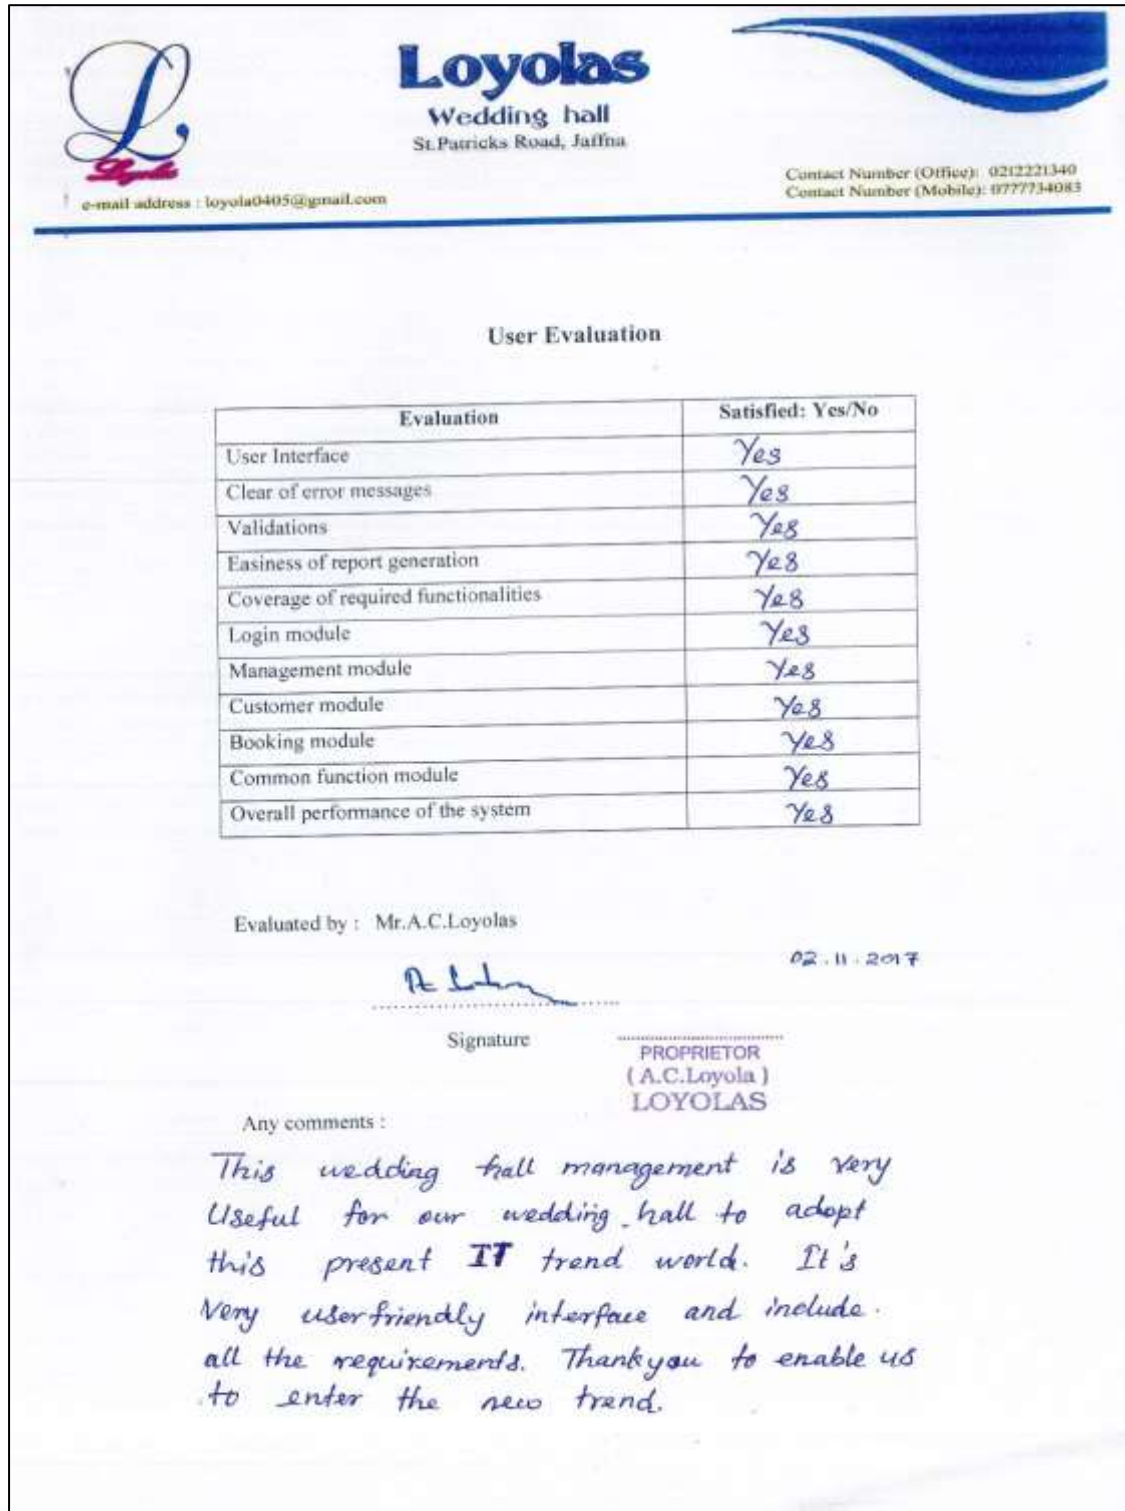 Loyolas
Wedding hall
St.Patricks Road, Jaffna
Loyolas
Contact Number (Office): 0212221340
Contact Number (Mobile): 0777734083
e-mail address : loyola0405@gmail.com
User Evaluation
Evaluation Satisfied: Yes/No
User Interface Yes
Clear of error messages Yes
Validations Yes
Easiness of report generation Yes
Coverage of required functionalities Yes
Login module Yes
Management module Yes
Customer module Yes
Booking module Yes
Common function module Yes
Overall performance of the system Yes
Evaluated by : Mr.A.C.Loyolas
02.11.2017
Signature
PROPRIETOR
( A.C.Loyola )
LOYOLAS
Any comments :
This wedding hall management is very
Useful for our wedding hall to adopt
this present IT trend world. It's
Very userfriendly interface and include
all the requirements. Thankyou to enable us
to enter the new trend.